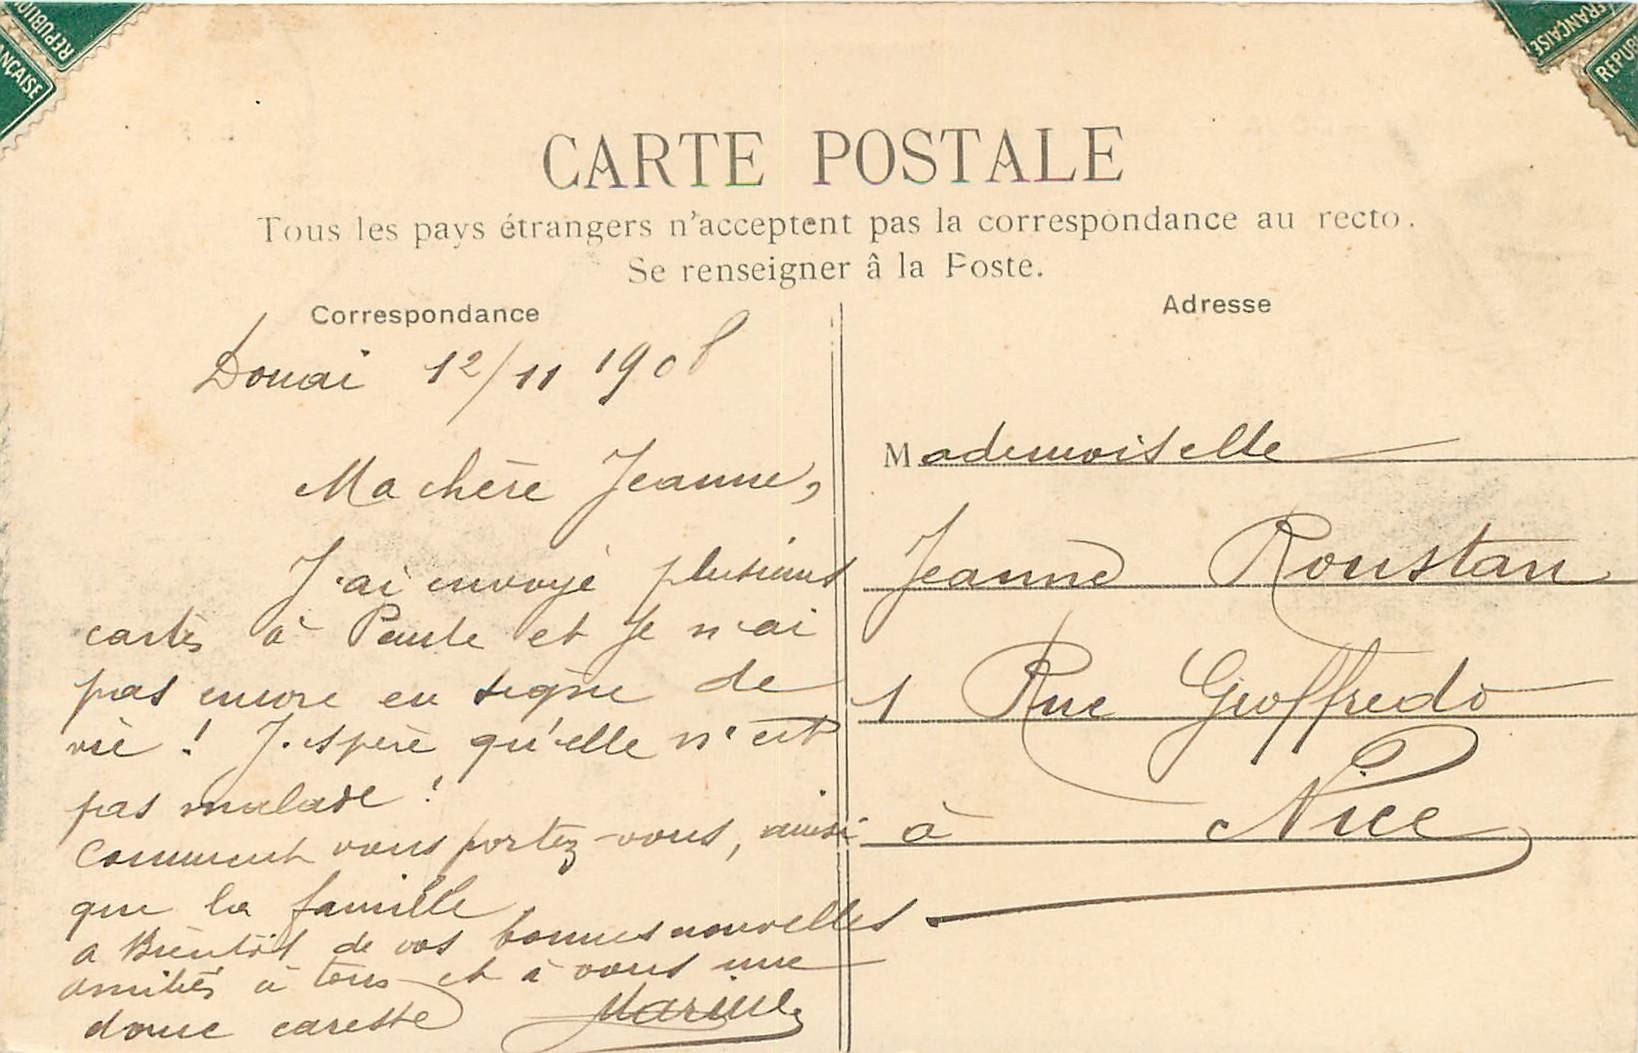 RÉPUBLIQ
NÇAISE
FRANÇAISE
RÉPUBL
CARTE POSTALE
Tous les pays étrangers n'acceptent pas la correspondance au recto.
Se renseigner â la Poste.
Correspondance
Douai 12/11 1908
Ma chère Jeanne,
J'ai envoyé plusieurs
cartes à Paule et je n'ai
pas encore eu signe de
vie ! J'espère qu'elle n'est
pas malade !
Comment vous portez-vous, ainsi
que la famille
a Bientôt de vos bonnes nouvelles
amitiés à tous et à vous une
douce caresse
Adresse
Mademoiselle
Jeanne Roustan
1 Rue Gioffredo
à Nice